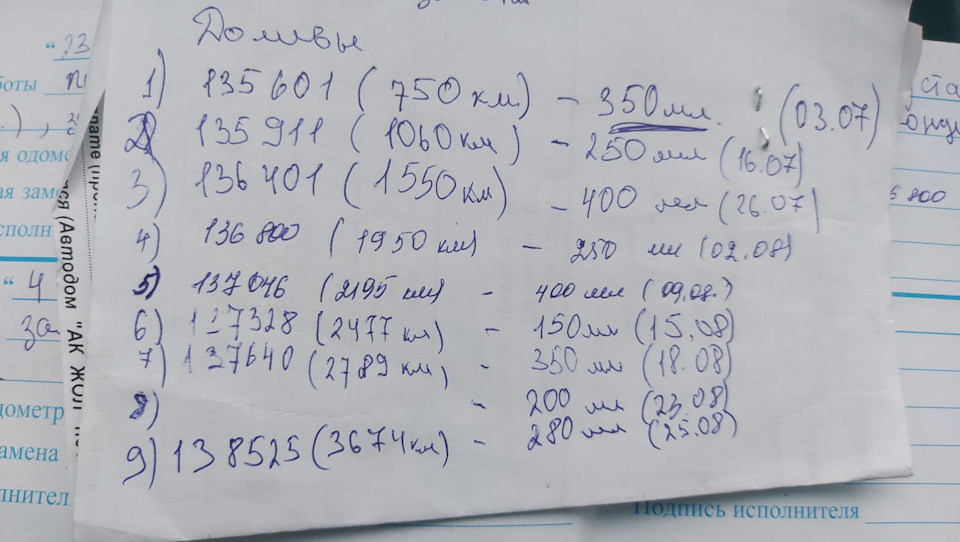 Доливы
1) 135601 (750 км) – 350 мл. (03.07)
2) 135911 (1060 км) – 250 мл (16.07)
3) 136401 (1550 км) – 400 мл (26.07)
4) 136800 (1950 км) – 250 мл (02.08)
5) 137046 (2195 км) – 400 мл (09.08.)
6) 137328 (2477 км) – 150 мл (15.08)
7) 137640 (2789 км) – 350 мл (18.08)
8) – 200 мл (23.08)
9) 138525 (3674 км) – 280 мл (25.08)
"23
боты
я одоме
ая заме
сполн
" 4
за
дометр
амена
лнител
тся (Автодом "АК ЖОЛ"
ста
Подпись исполнителя